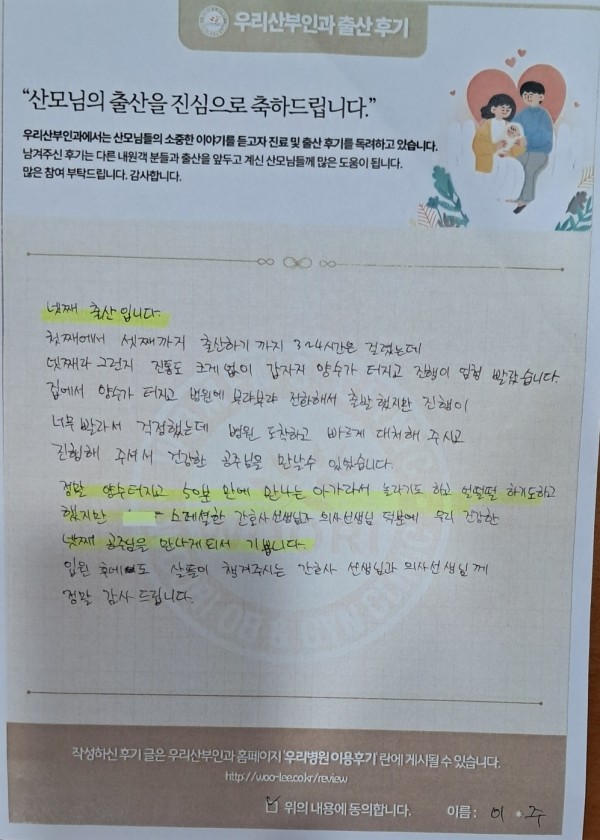 우리산부인과 출산 후기
“산모님의 출산을 진심으로 축하드립니다.”
우리산부인과에서는 산모님들의 소중한 이야기를 듣고자 진료 및 출산 후기를 독려하고 있습니다.
남겨주신 후기는 다른 내원객 분들과 출산을 앞두고 계신 산모님들께 많은 도움이 됩니다.
많은 참여 부탁드립니다. 감사합니다.
넷째 출산입니다.
첫째에서 셋째까지 출산하기 까지 3~4시간은 걸렸는데
넷째라 그런지 진통도 크게 없이 갑자기 양수가 터지고 진행이 엄청 빨랐습니다.
집에서 양수가 터지고 병원에 부랴부랴 전화해서 출발했지만 진행이
너무 빨라서 걱정했는데 병원 도착하고 빠르게 대처해 주시고
진행해 주셔서 건강한 공주님을 만날수 있었습니다.
정말 양수터지고 50분 만에 만나는 아가라서 놀라기도 하고 얼떨떨 하기도하고
했지만 스페셜한 간호사선생님과 의사선생님 덕분에 우리 건강한
넷째 공주님을 만나게되서 기쁩니다.
입원 후에도 살뜰이 챙겨주시는 간호사 선생님과 의사선생님께
정말 감사 드립니다.
작성하신 후기 글은 우리산부인과 홈페이지 '우리병원 이용후기' 란에 게시될 수 있습니다.
http://woo-lee.co.kr/review
위의 내용에 동의합니다. 이름 : 이 * 주